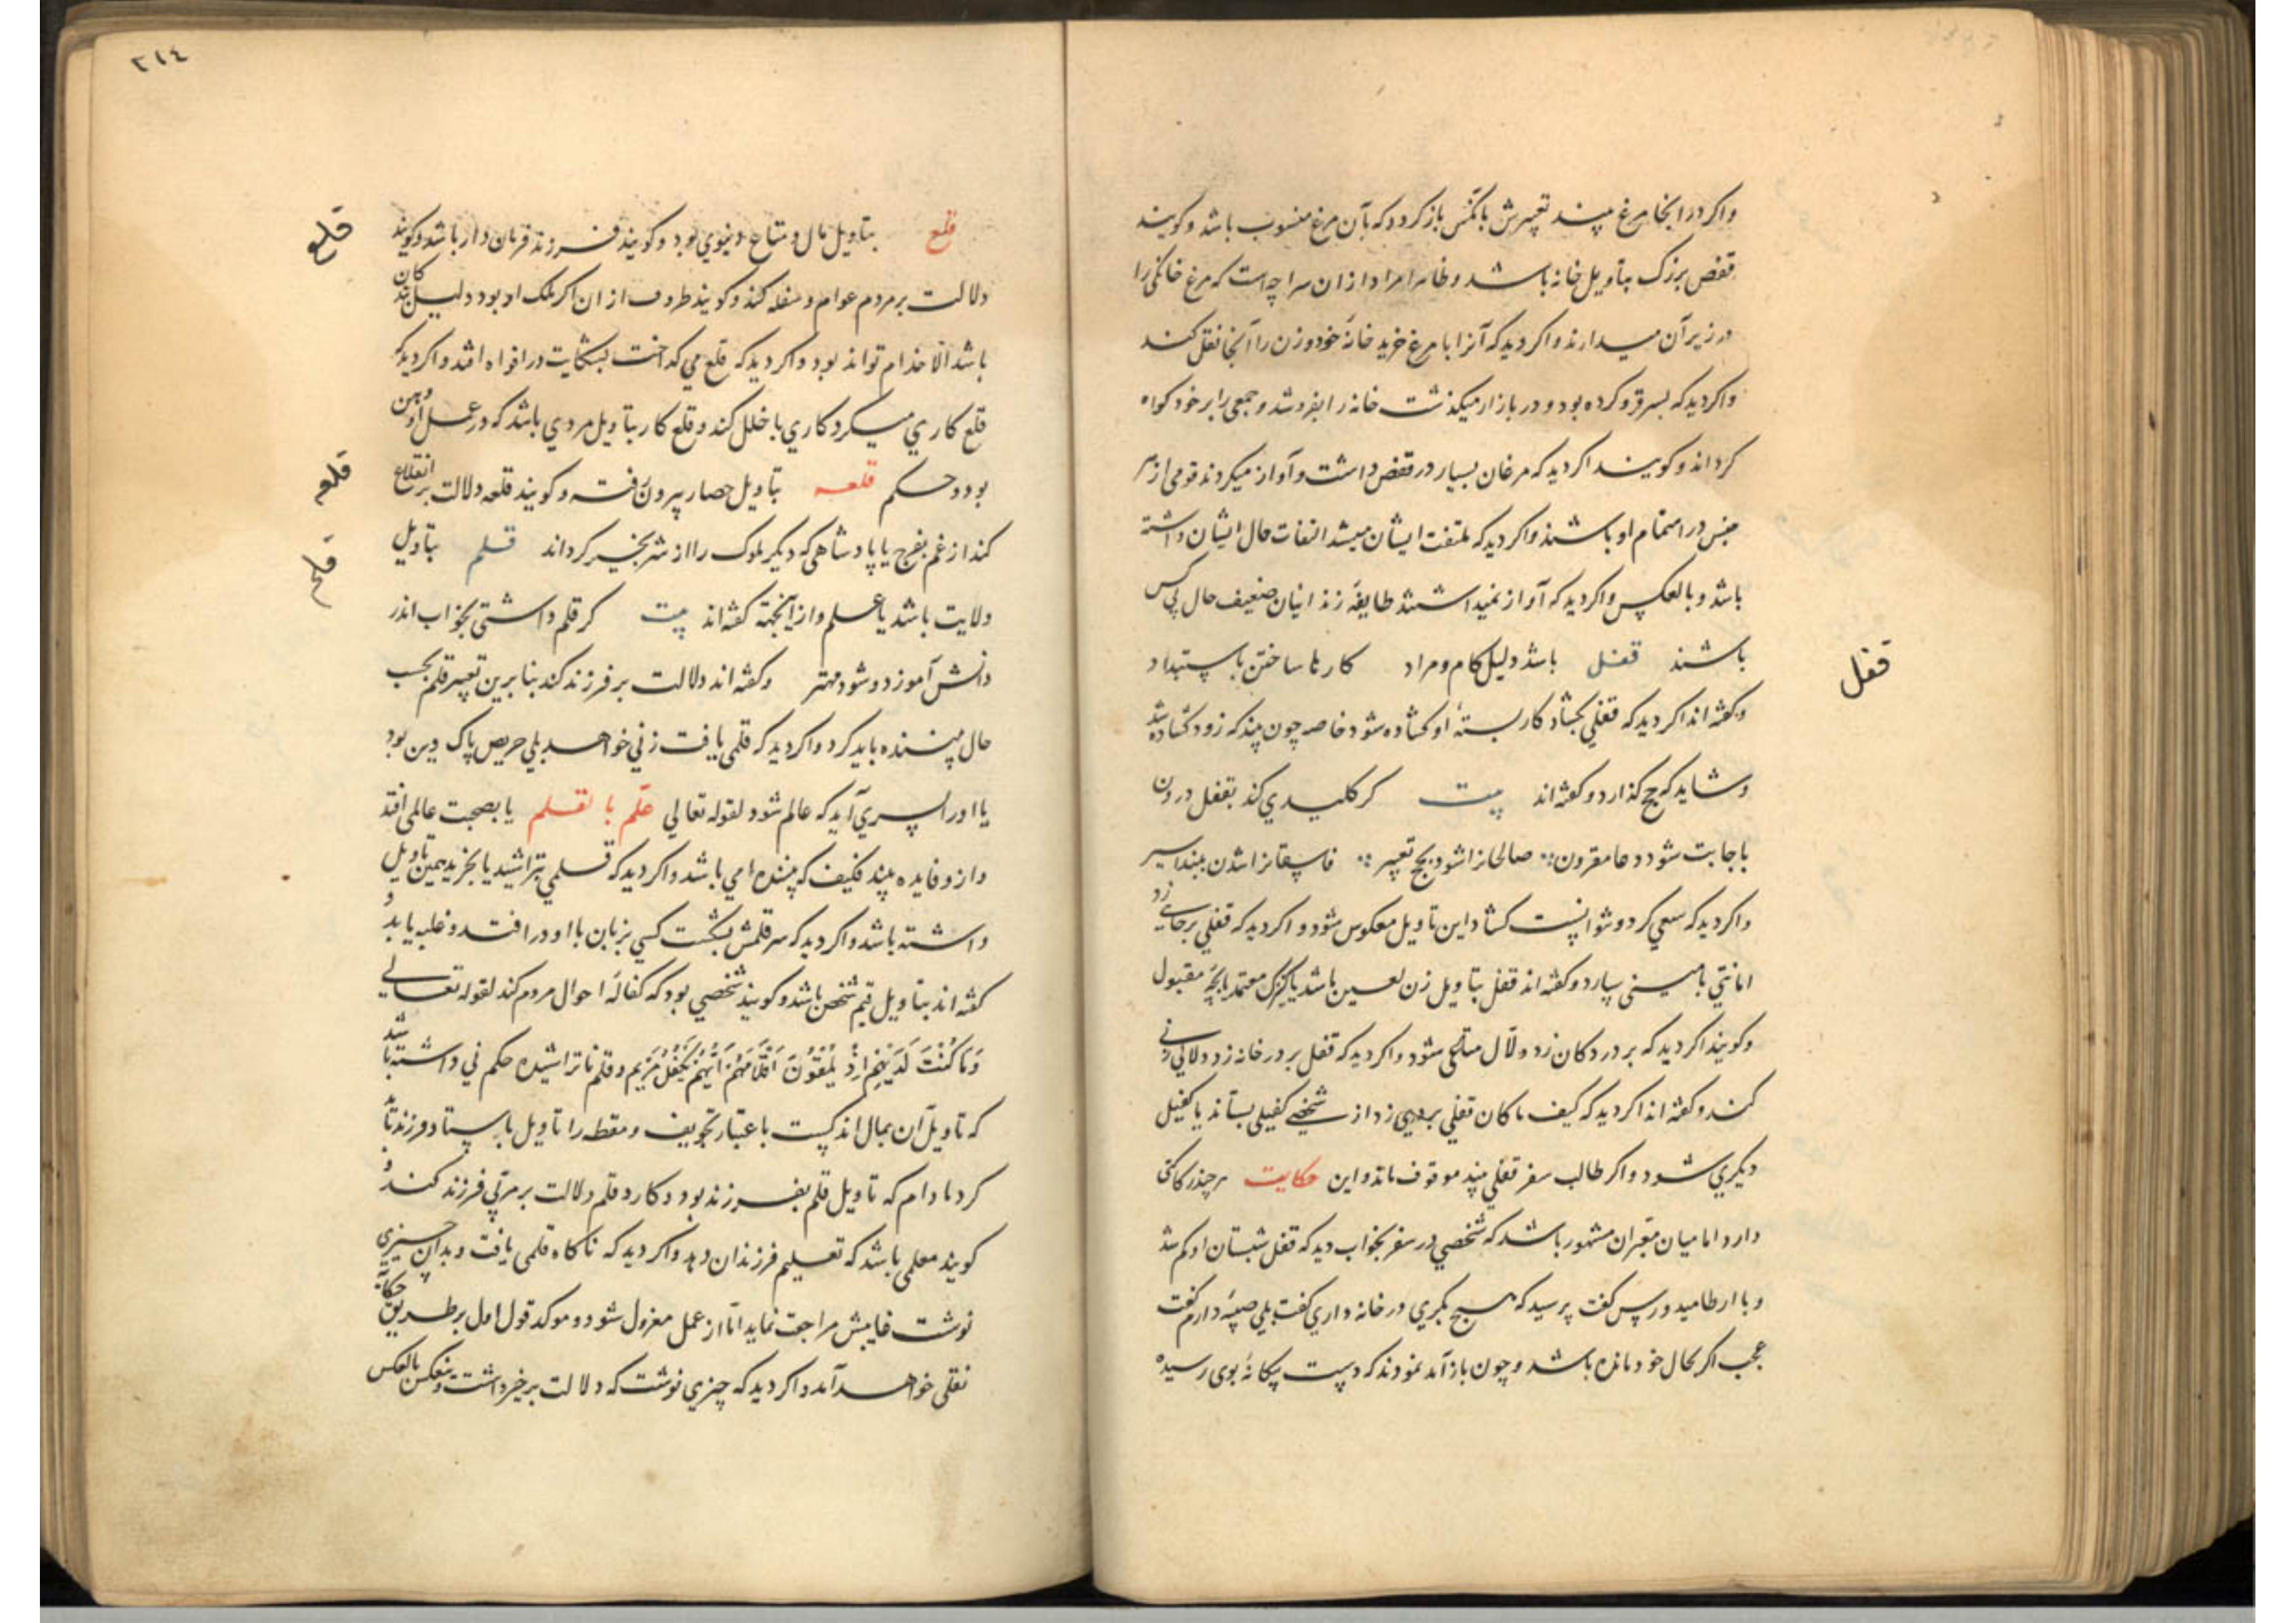 واکر در انجا مرغ بیند تعبیرش با کسی باز کردد که بآن مرغ منسوب باشد و کویند
قفص بزرک بتاویل خانه باشد و ظاهرا مراد ازان سراچه است که مرغ خانکی را
در زیر آن میدارند واکر دید که آنرا با مرغ خرید خانهٔ خود و زن را آنجا نقل کند
واکر دید که بسر فرو کرده بود و در بازار میکذشت خانه را بفروشد و جمعی را بر خود کواه
کرداند و کویند اکر دید که مرغان بسیار در قفص داشت و آواز میکردند قومی از هر
جنس در اهتمام او باشند واکر دید که ملتفت ایشان میشد التفات حال ایشان داشته
باشد و بالعکس واکر دید که آواز نمیداشتند طایفهٔ زندانیان ضعیف حال بی کس
باشند قفل باشد دلیل کام و مراد کارها ساختن باستبداد
و کفته اند اکر دید که قفلی بکشاد کار بستهٔ او کشاده شود خاصه چون بیند که زود کشاده شد
و شاید که حج کذارد و کفته اند بیت کر کلیدی کند بقفل درون
باجابت شود دعا مقرون صالحانرا شود بحج تعبیر فاسقانرا شدن ببند اسیر
واکر دید که سعی کرد و نتوانست کشاد این تاویل معکوس شود و اکر دید که قفلی بر جایی زد
امانتی با مینی سپارد و کفته اند قفل بتاویل زن لعین باشد یا کنیزک معتمد یا بچهٔ مقبول
و کویند اکر دید که بر در دکان زد دلال متاعی شود واکر دید که قفل بر در خانه زد دلالی زنی
کند و کفته اند اکر دید که کیف ما کان قفلی بر زد از شخصی کفیلی بستاند یا کفیل
دیکری شود و اکر طالب سفر قفلی بیند موقوف ماند و این حکایت هر چند رکاکتی
دارد اما میان معبران مشهور باشد که شخصی در سفر بخواب دید که قفل شبستان او کم شد
و با کفت پرسید که هیچ بکری در خانه داری کفت بلی صبیهٔ دارم کفت
عجب اکر بحال خود مانده باشد و چون باز آمد نمودند که دست بیکانهٔ بوی رسیده
قفل
٣١٤
قلع بتاویل مال و متاع دنیوی بود و کویند فرزند فرمان دار باشد و کویند
دلالت بر مردم عوام و سفله کند و کویند ظروف از ان اکر ملک او بود دلیل
باشد الا خدام تواند بود واکر دید که قلع می کداخت بشکایت در افواه افتد واکر دید که
قلع کاری میکرد کاری با خلل کند و قلع کار بتاویل مردی باشد که در عمل او وهن
بود و حکم قلعه بتاویل حصار بیرون رفت و کویند قلعه دلالت بر انقلاع
کند از غم بفرح یا پادشاهی که دیکر ملوک را از شر بخیر کرداند قلم بتاویل
ولایت باشد یا علم و از اینجهة کفته اند بیت کر قلم داشتی بخواب اندر
دانش آموزد و شود مهتر و کفته اند دلالت بر فرزند کند بنا برین تعبیر قلم بحسب
حال بیننده باید کرد واکر دید که قلمی یافت زنی خواهد بلی حریص پاک دین بود
یا اورا پسری آید که عالم شود لقوله تعالی علّم بالقلم یا بصحبت عالمی افتد
و ازو فایده بیند فکیف که بیننده امی باشد واکر دید که قلمی بتراشید یا بخرید همین تاویل
داشته باشد واکر دید که سر قلمش بشکست کسی بزبان با او در افتد و غلبه یابد و
کفته اند بتاویل قیم شخص باشد و کویند شخصی بود که کفالهٔ احوال مردم کند لقوله تعالی
وَمَا كُنْتَ لَدَيْهِمْ اِذْ يُلْقُونَ اَقْلَامَهُمْ اَيُّهُمْ يَكْفُلُ مَرْيَم و قلم ناتراشیده حکم نی داشته باشد
که تاویل آن بمال اندکیست باعتبار تجویف و مقطه را تاویل باستاد فرزند باید
کرد مادام که تاویل قلم بفرزند بود و کارد قلم دلالت بر مربی فرزند کند و
کویند معلمی باشد که تعلیم فرزندان دهد واکر دید که ناکاه قلمی یافت و بدان چیزی
نوشت غایبش مراجعت نماید اما از عمل معزول شود و موکد قول اول بر طریق حکایة
نقلی خواهد آمد واکر دید که چیزی نوشت که دلالت بر خیر داشت بالعکس
قلع
قلعه
قلم